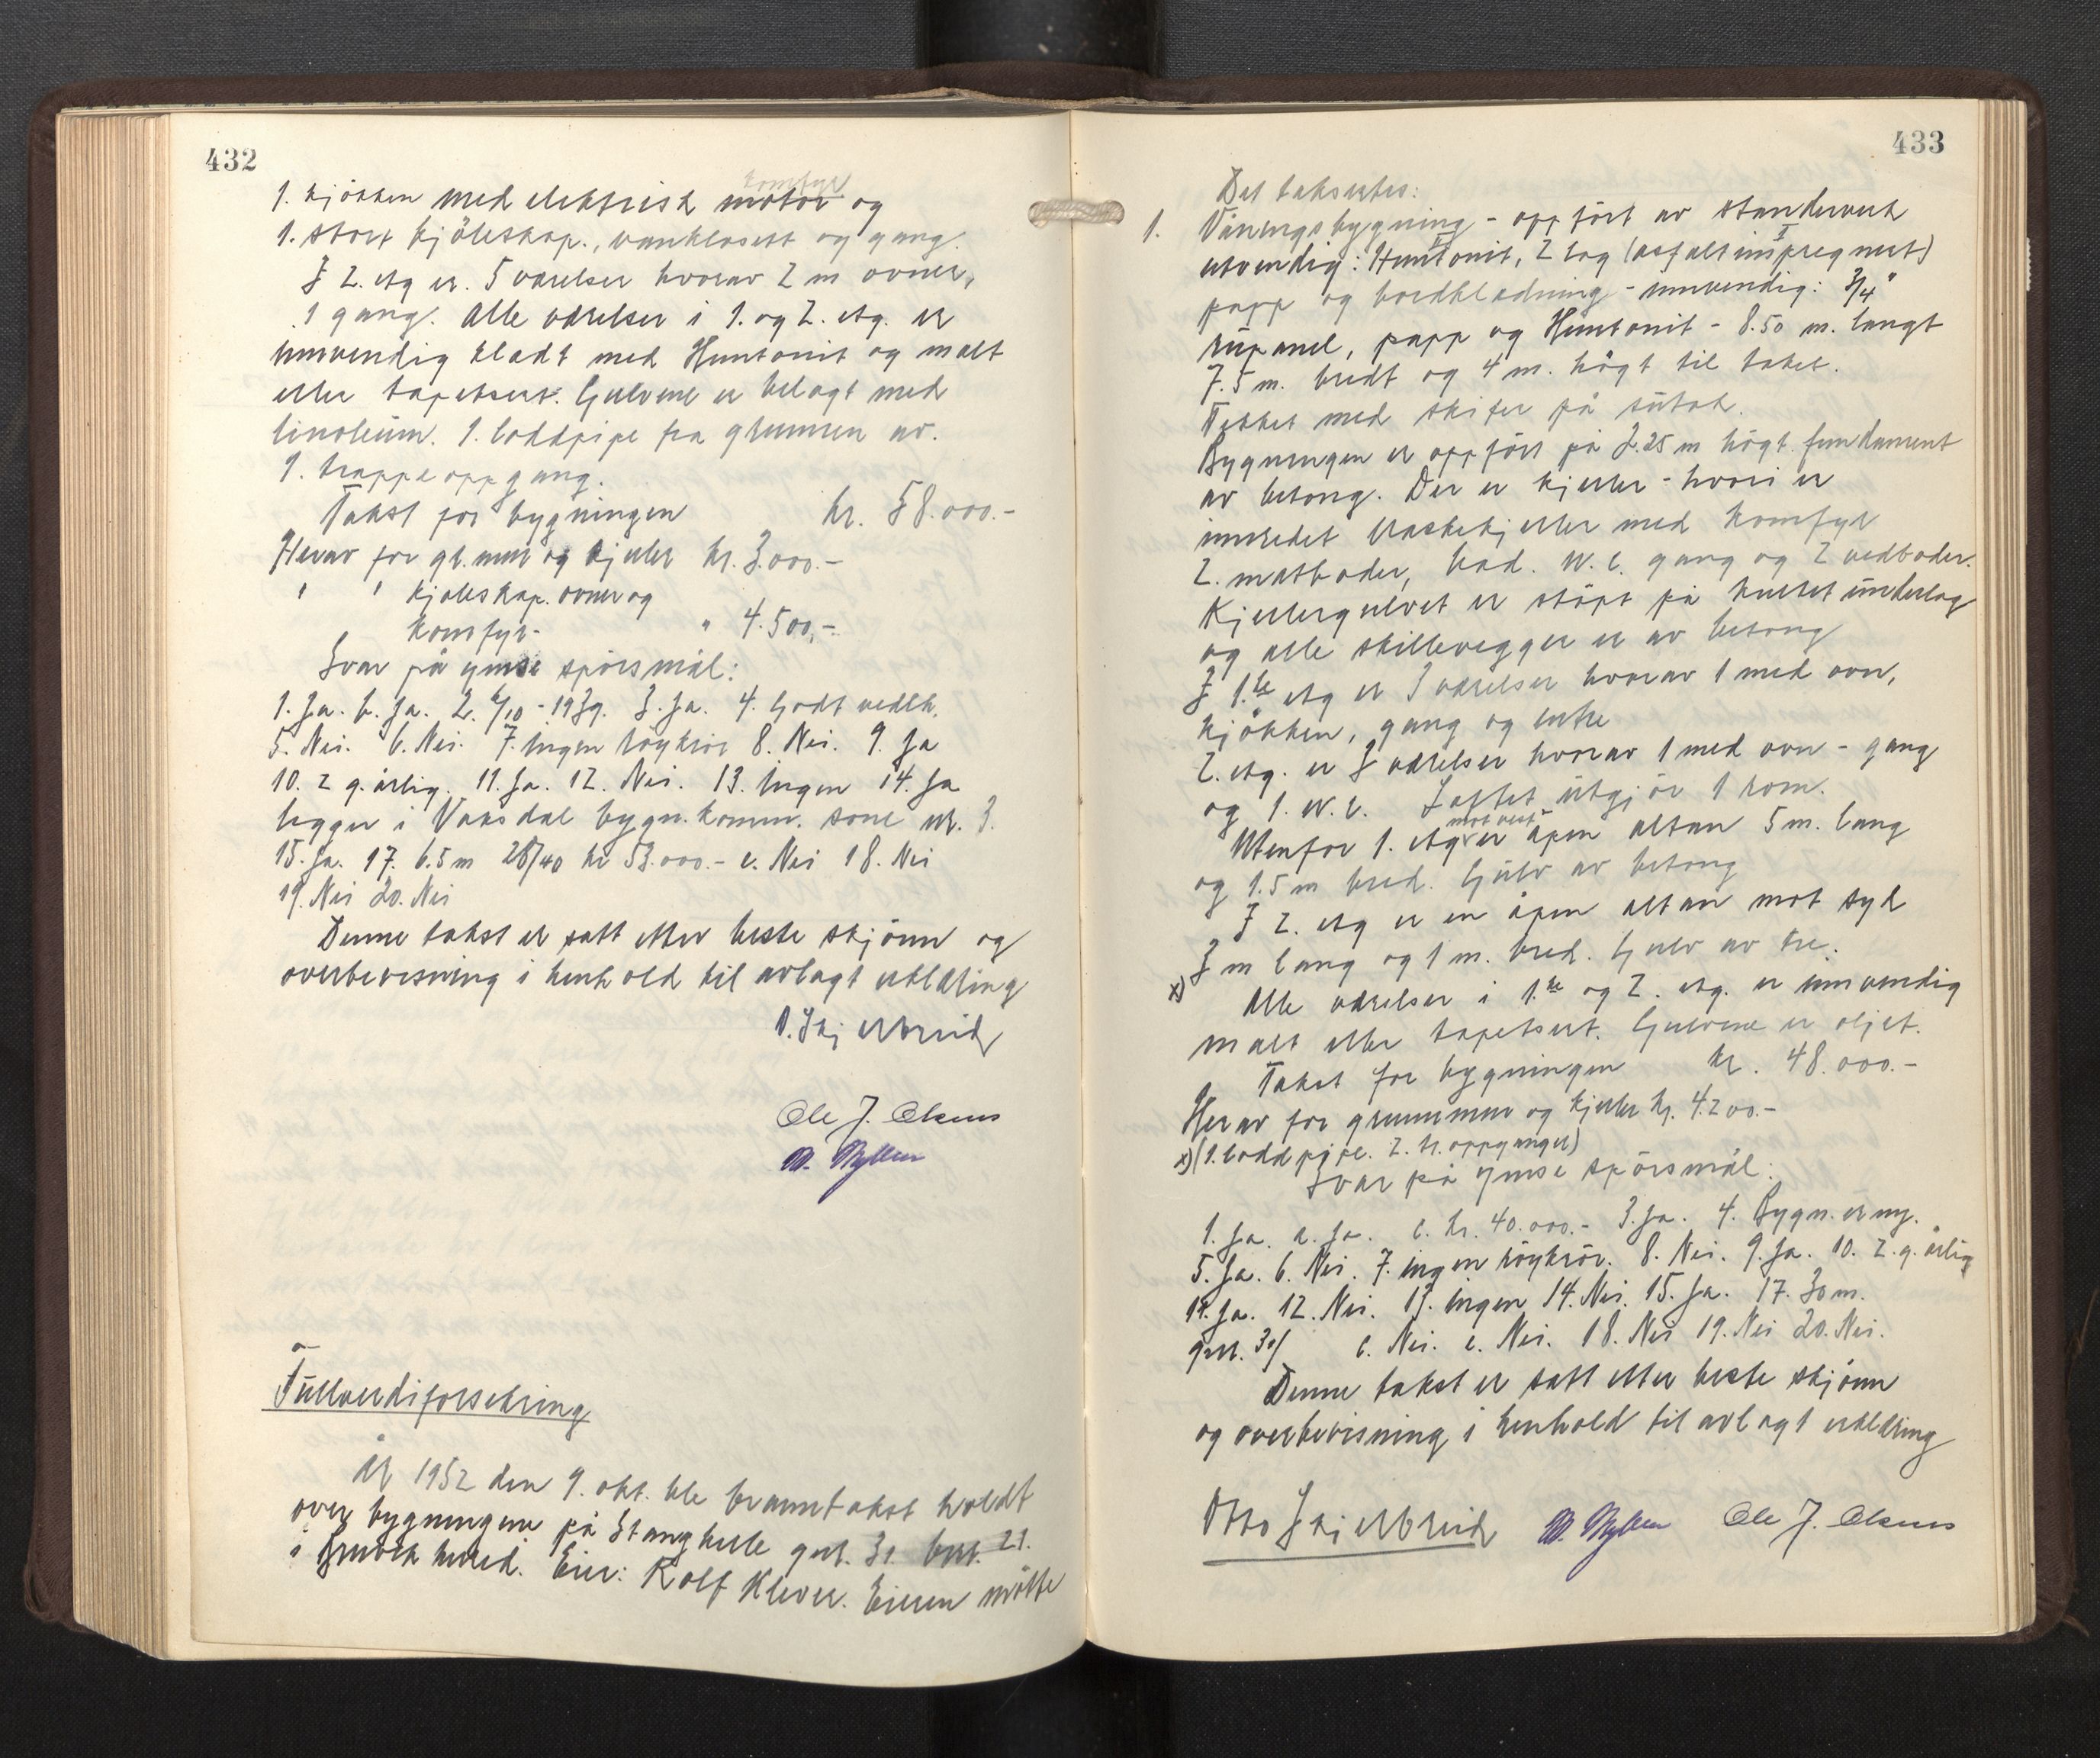 432
1. kjøkken med elektrisk motor komfyr og
1. stort kjøleskap., vanklosett og gang.
I 2. etg er. 5 værelser hvorav 2 m ovner,
1 gang. Alle værelser i 1. og 2. etg. er
innvendig kledt med Huntonit og malt
eller tapetsert. Gulvene er belagt med
linoleum. 1. loddpipe fra grunnen av.
1. trappeoppgang.
Takst for bygningen kr. 58.000.-
Herav for gr. mur og kjeller kr. 3.000.-
" " kjøleskap. ovner og
komfyr- " 4.500,-
Svar på ymse spørsmål:
1. Ja. b. Ja. 2. 6/10 - 1939. 3. Ja. 4. Godt vedlh.
5. Nei. 6. Nei. 7. Ingen røykrør 8. Nei. 9. Ja
10. 2 g. årlig. 11. Ja. 12. Nei. 13. Ingen 14. Ja
ligger i Vaksdal bygn. komm. sone nr. 3.
15. Ja. 17. 6.5 m 28/40 kr 53.000.- e. Nei 18. Nei
19. Nei 20. Nei
Denne takst er satt etter beste skjønn og
overbevisning i henhold til avlagt erklæring
O. Skjelbreid
Ole J. Olsnes
Fullverdiforsikring
År 1952 den 9. okt. ble branntakst holdt
over bygningene på Stanghelle gnr. 31 bnr. 21.
i Bruvik herred. Eier: Rolf Klever. Eieren møtte
433
Det takseres:
1. Våningsbygning - oppført av standerverk
utvendig: Huntonit, 2 lag (asfaltimpregnert)
papp og bordkledning - innvendig: 3/4"
rupanel, papp og Huntonit - 8.50 m. langt
7.5 m. bredt og 4 m. høgt til taket.
Tekket med skifer på sutak.
Bygningen er oppført på 2.25 m høgt fundament
av betong. Der er kjeller - hvori er
innredet vaskekjeller med komfyr
2. matboder, bad. W.C. gang og 2 vedboder.
Kjellergulvet er støpt på kultet underlag
og alle skillevegger er av betong
I 1.ste etg er 3 værelser hvorav 1 med ovn,
kjøkken, gang og entre
2. etg. er 3 værelser hvorav 1 med ovn - gang
og 1. W.C. Loftet utgjør 1 rom.
Utenfor 1. etg mot vest er åpen altan 5 m. lang
og 1.5 m bred. Gulv av betong
I 2. etg er en åpen altan mot syd
3 m lang og 1 m. bred. Gulv av tre.
x) Alle værelser i 1.ste og 2. etg. er innvendig
malt eller tapetsert. Gulvene er oljet.
Takst for bygningen kr. 48.000.-
Herav for grunnmur og kjeller kr. 4.200.-
x) (1. loddpipe. 2. tr. oppganger)
Svar på ymse spørsmål:
1. Ja. a. Ja. c. kr. 40.000.- 3. Ja. 4. Bygn. er ny.
5. Ja. 6. Nei. 7. Ingen røykrør. 8. Nei. 9. Ja. 10. 2. g. årlig
11. Ja. 12. Nei. 13. Ingen 14. Nei. 15. Ja. 17. 30 m.
gnr. 31/ c. Nei. e. Nei. 18. Nei 19. Nei 20. Nei.
Denne takst er satt etter beste skjønn
og overbevisning i henhold til avlagt erklæring
Otto Skjelbreid Ole J. Olsnes